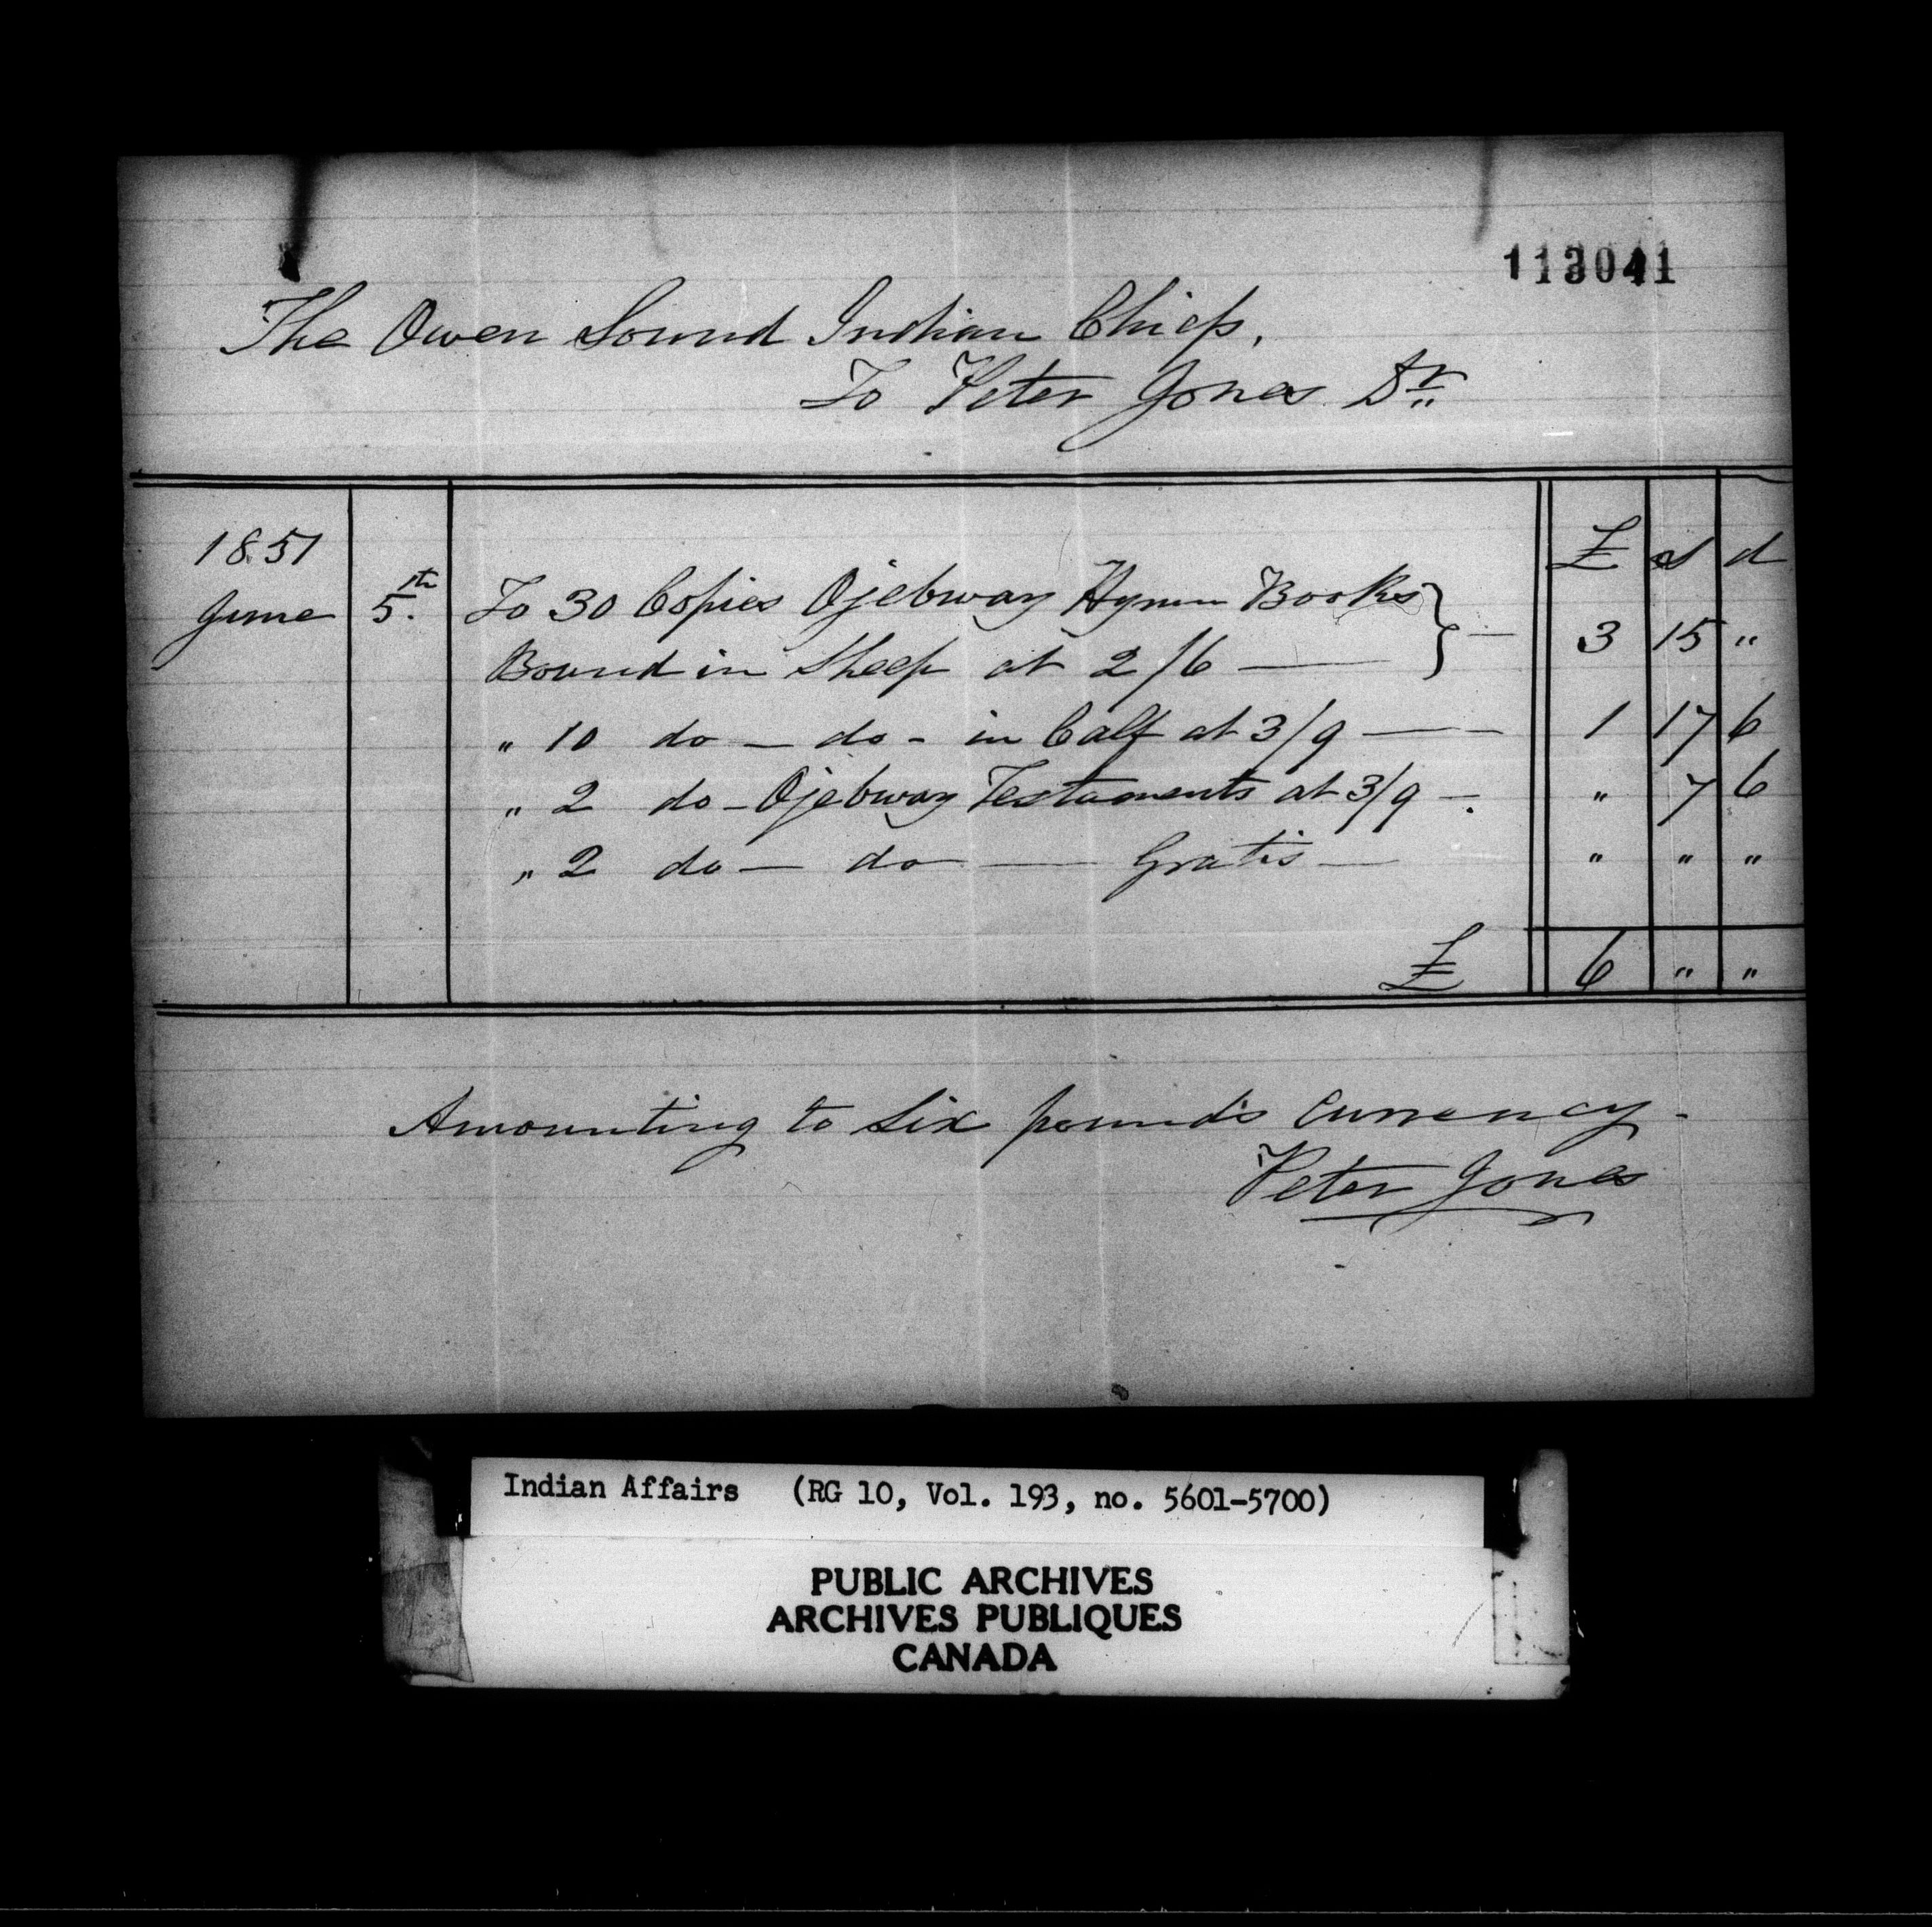 113041
The Owen Sound Indian Chiefs,
To Peter Jones Dr
£ s d
1851
June 5th. To 30 Copies Ojebway Hymn Books
Bound in Sheep at 2/6 — } — 3 15 "
" 10 do — do - in Calf at 3/9 — — 1 17 6
" 2 do - Ojebway Testaments at 3/9 — " 7 6
" 2 do — do — Gratis — " " "
£ 6 " "
Amounting to Six pounds Currency -
Peter Jones
Indian Affairs (RG 10, Vol. 193, no. 5601-5700)
PUBLIC ARCHIVES
ARCHIVES PUBLIQUES
CANADA